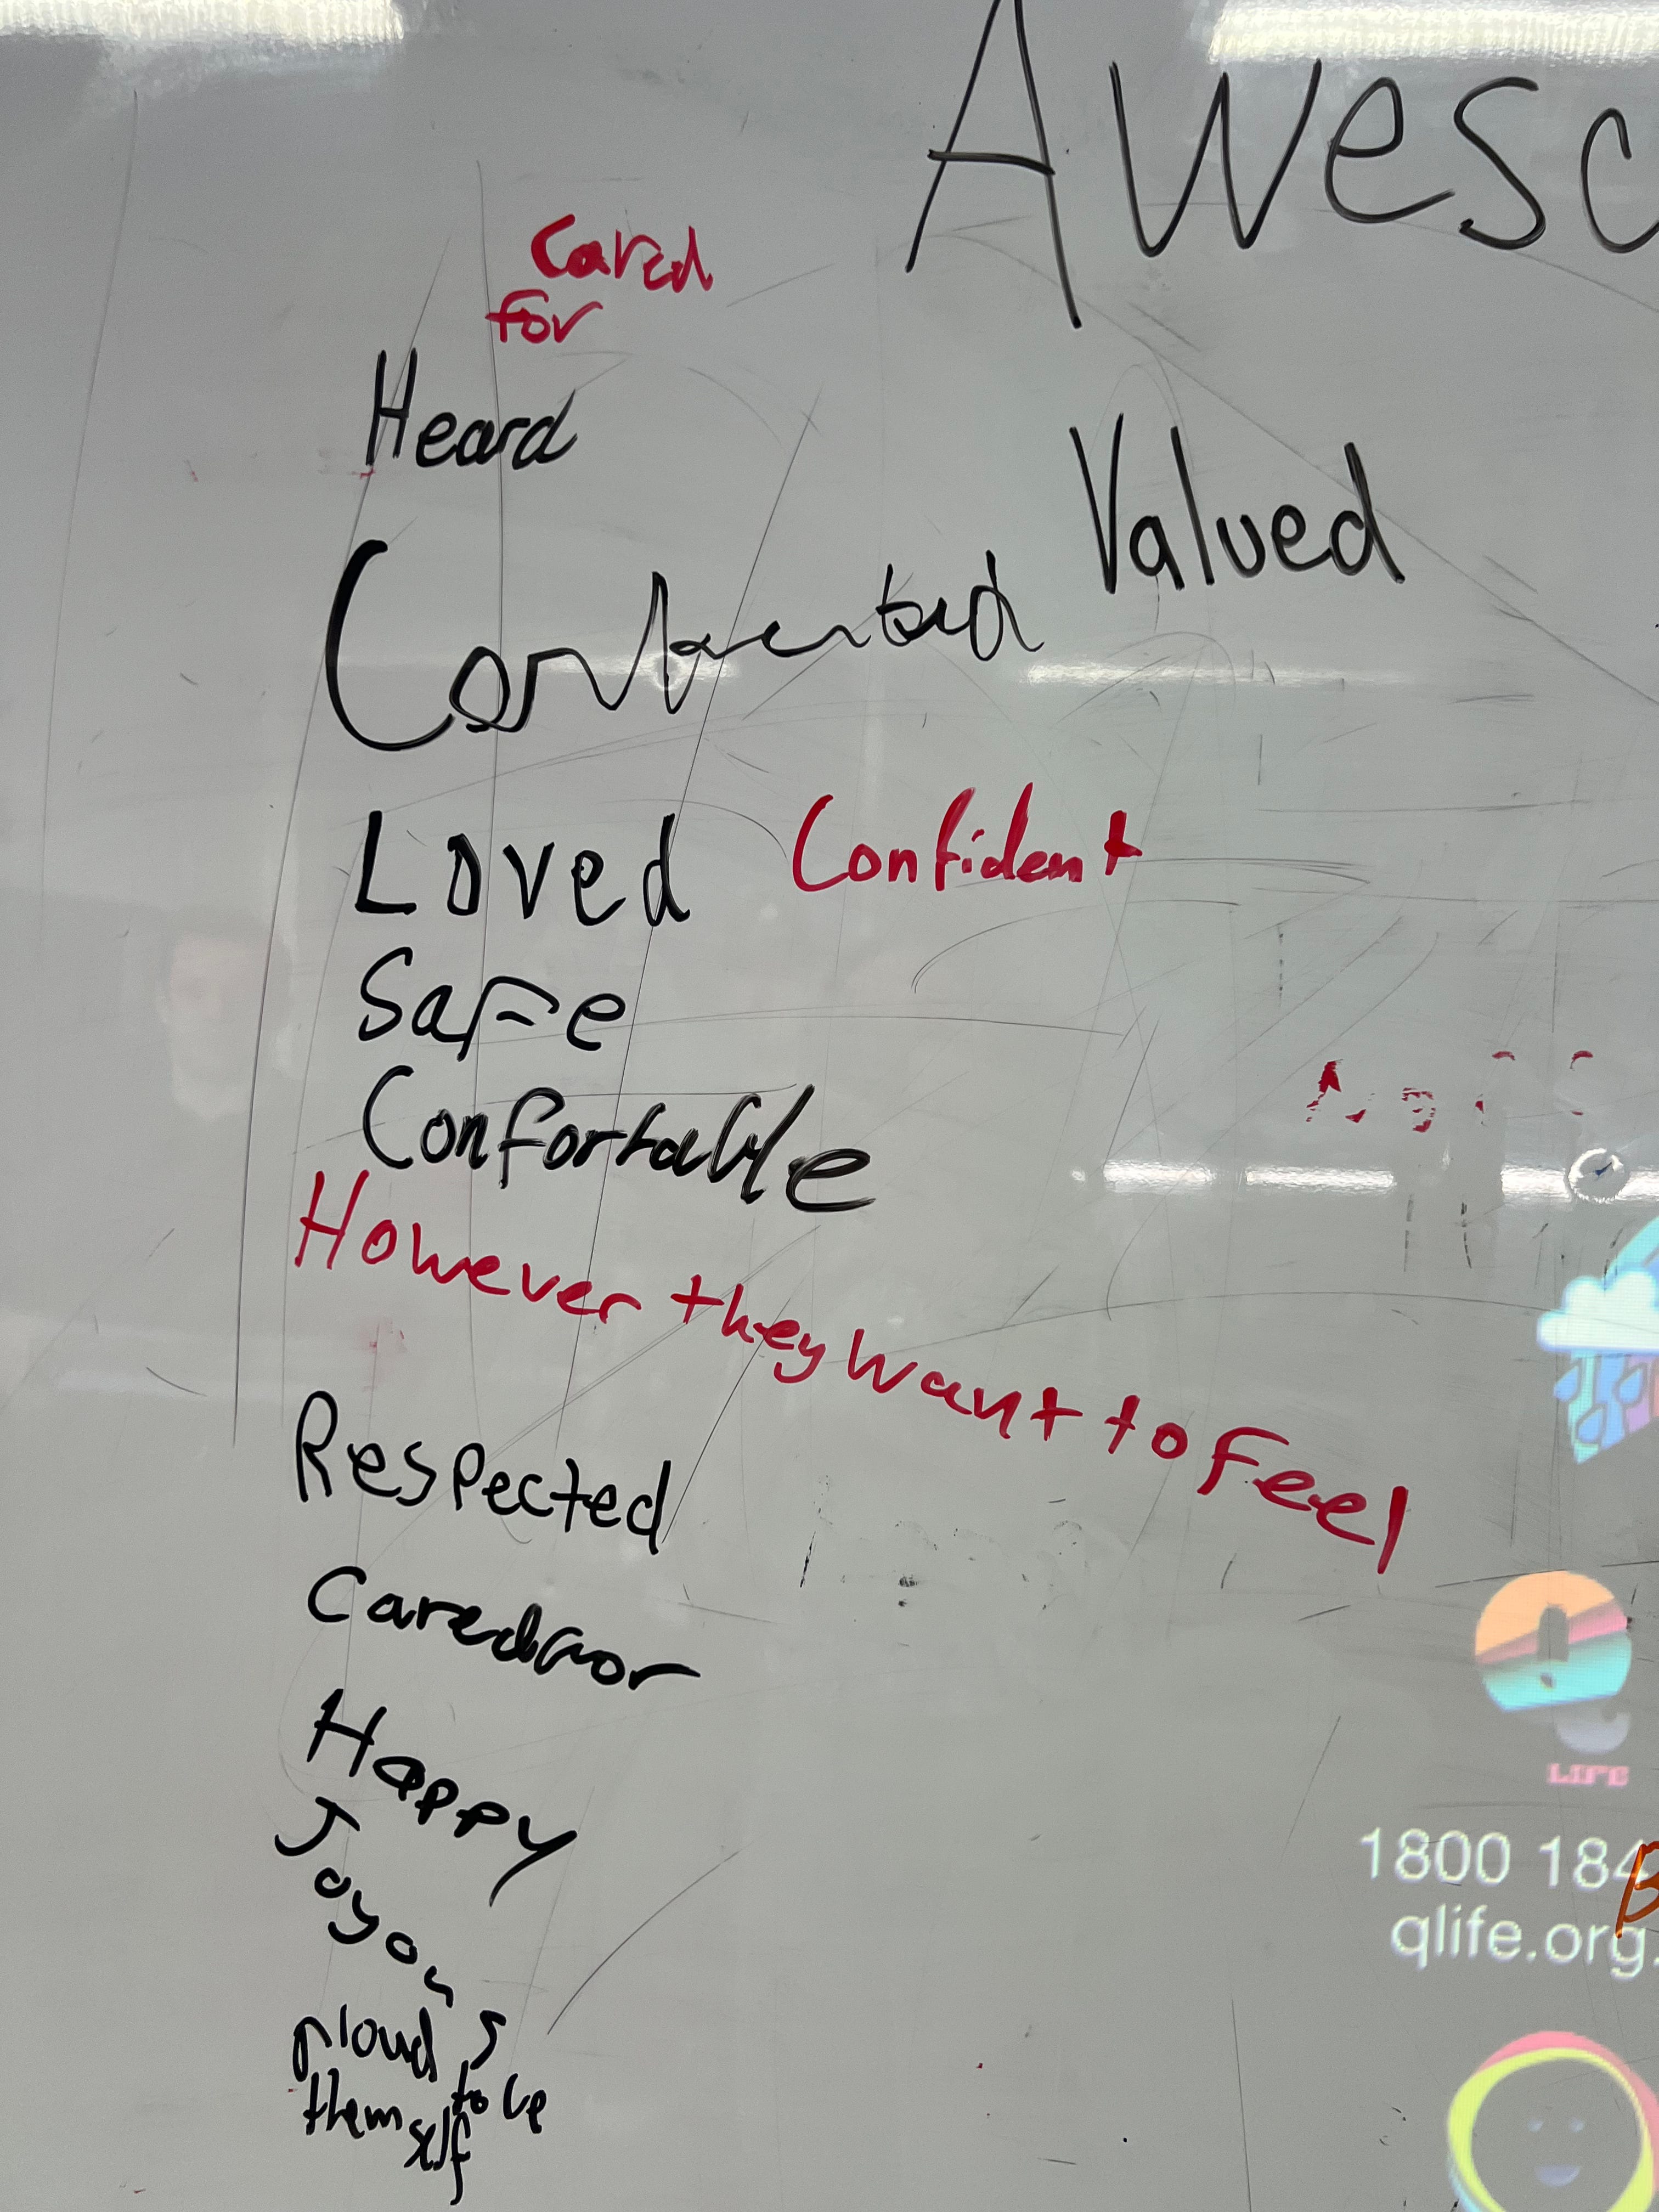 Aweso
Cared
for
Heard
Valued
Loved
Confident
Safe
Confortable
However they want to Feel
Respected
Cared for
Happy
Joyous
proud to be
themself
LIFE
1800 184
qlife.org.